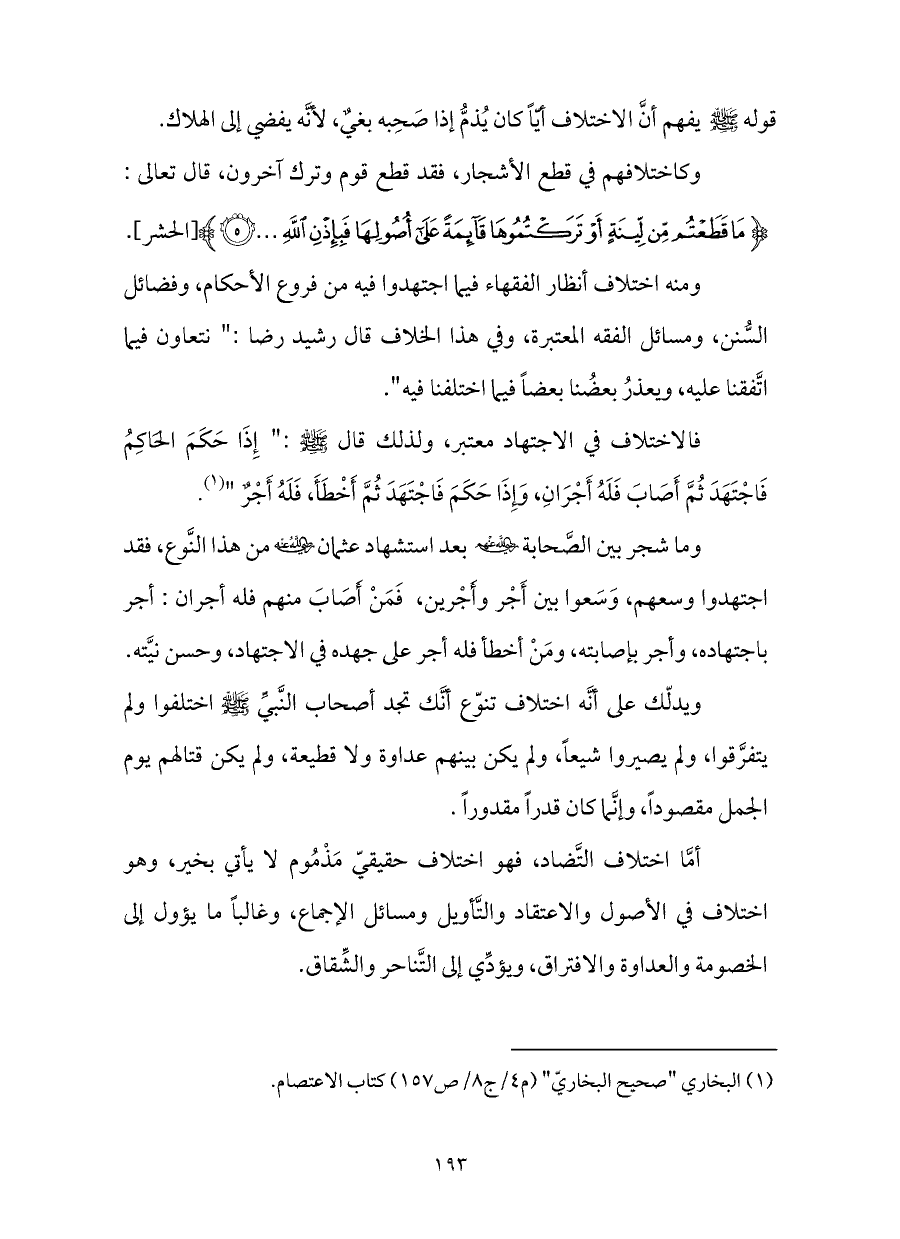 قوله ﷺ يفهم أنَّ الاختلاف أيّاً كان يُذمُّ إذا صَحِبه بغيٌ، لأنَّه يفضي إلى الهلاك.
وكاختلافهم في قطع الأشجار، فقد قطع قوم وترك آخرون، قال تعالى :
﴿ مَا قَطَعْتُم مِّن لِّينَةٍ أَوْ تَرَكْتُمُوهَا قَآئِمَةً عَلَىٰٓ أُصُولِهَا فَبِإِذْنِ ٱللَّهِ ... ۝٥ ﴾[الحشر].
ومنه اختلاف أنظار الفقهاء فيما اجتهدوا فيه من فروع الأحكام، وفضائل
السُّنن، ومسائل الفقه المعتبرة، وفي هذا الخلاف قال رشيد رضا :" نتعاون فيما
اتَّفقنا عليه، ويعذرُ بعضُنا بعضاً فيما اختلفنا فيه".
فالاختلاف في الاجتهاد معتبر، ولذلك قال ﷺ :" إِذَا حَكَمَ الحَاكِمُ
فَاجْتَهَدَ ثُمَّ أَصَابَ فَلَهُ أَجْرَانِ، وَإِذَا حَكَمَ فَاجْتَهَدَ ثُمَّ أَخْطَأَ، فَلَهُ أَجْرٌ "(١).
وما شجر بين الصَّحابة رضي الله عنهم بعد استشهاد عثمان رضي الله عنه من هذا النَّوع، فقد
اجتهدوا وسعهم، وَسَعوا بين أَجْر وأَجْرين، فَمَنْ أَصَابَ منهم فله أجران : أجر
باجتهاده، وأجر بإصابته، ومَنْ أخطأ فله أجر على جهده في الاجتهاد، وحسن نيَّته.
ويدلّك على أنَّه اختلاف تنوّع أنَّك تجد أصحاب النَّبيِّ ﷺ اختلفوا ولم
يتفرَّقوا، ولم يصيروا شيعاً، ولم يكن بينهم عداوة ولا قطيعة، ولم يكن قتالهم يوم
الجمل مقصوداً، وإنَّما كان قدراً مقدوراً .
أمَّا اختلاف التَّضاد، فهو اختلاف حقيقيّ مَذْمُوم لا يأتي بخير، وهو
اختلاف في الأصول والاعتقاد والتَّأويل ومسائل الإجماع، وغالباً ما يؤول إلى
الخصومة والعداوة والافتراق، ويؤدِّي إلى التَّناحر والشِّقاق.
(١) البخاري "صحيح البخاريّ" (م٤/ ج٨/ ص١٥٧) كتاب الاعتصام.
١٩٣